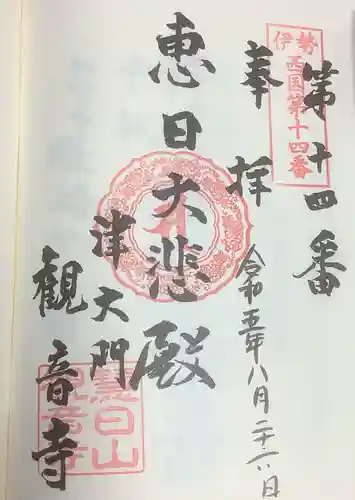 伊勢
西国第十四番
第十四番
奉拝
令和五年八月二十六日
恵日大悲殿
津大門
観音寺
恵日山
観音寺